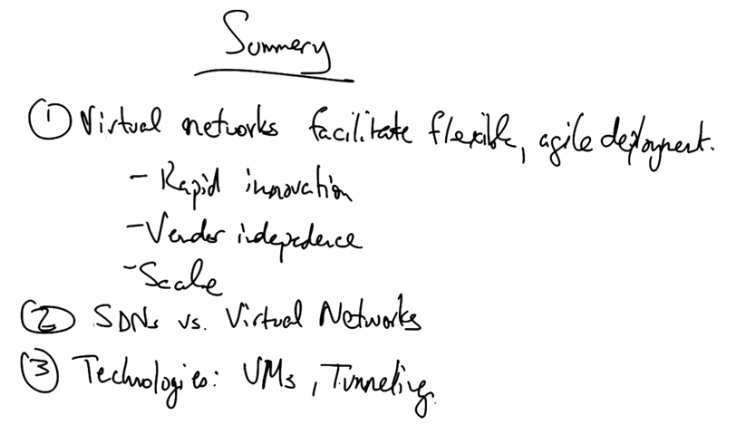 Summery
① Virtual networks facilitate flexible, agile deployment.
- Rapid innovation
- Vendor indepedence
- Scale
② SDNs vs. Virtual Networks
③ Technologies: VMs, Tunneling.